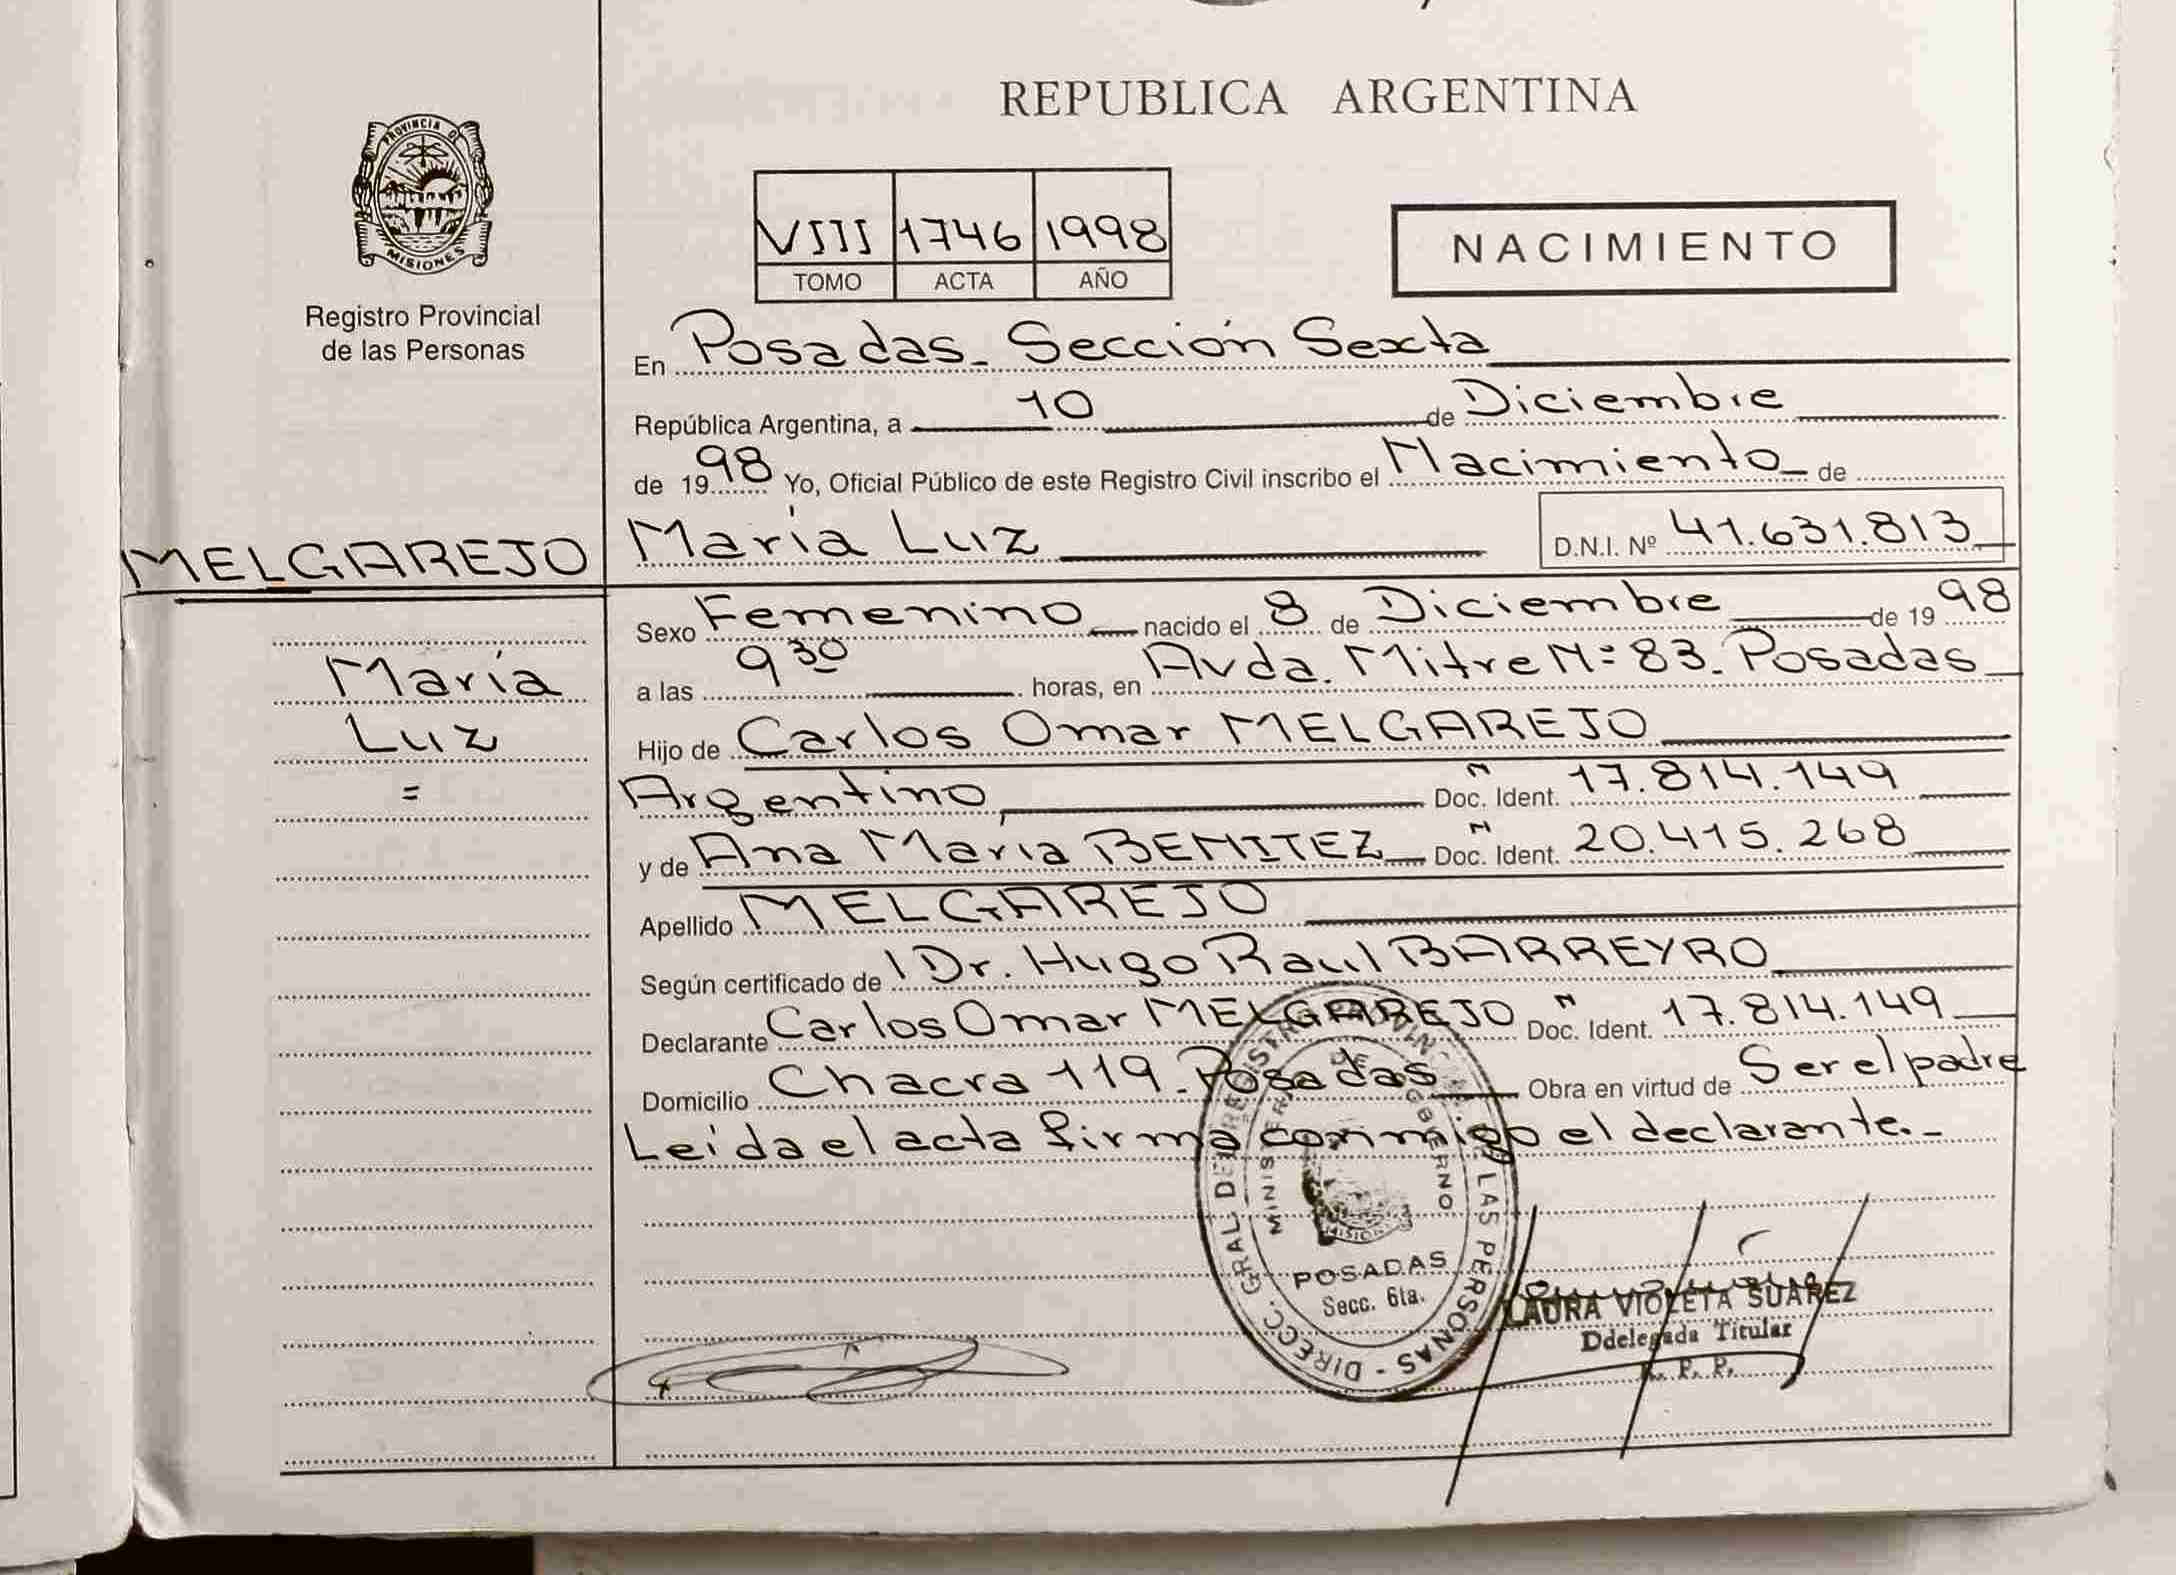 PROVINCIA DE
MISIONES
Registro Provincial
de las Personas
MELGAREJO
María
Luz
=
REPUBLICA ARGENTINA
VIII 1746 1998
TOMO ACTA AÑO
NACIMIENTO
En Posadas - Sección Sexta
República Argentina, a 10 de Diciembre
de 1998 Yo, Oficial Público de este Registro Civil inscribo el Nacimiento de
María Luz D.N.I. Nº 41.631.813
Sexo Femenino nacido el 8 de Diciembre de 1998
a las 9 30 horas, en Avda. Mitre Nº 83. Posadas
Hijo de Carlos Omar MELGAREJO
Argentino Doc. Ident. 17.814.149
y de Ana María BENITEZ Doc. Ident. 20.415.268
Apellido MELGAREJO
Según certificado de Dr. Hugo Raul BARREYRO
Declarante Carlos Omar MELGAREJO Doc. Ident. 17.814.149
Domicilio Chacra 119 - Posadas Obra en virtud de Ser el padre
Leída el acta firma conmigo el declarante. -
DIRECC. GRAL DE REGISTRO PROVINCIAL DE LAS PERSONAS -
MINISTERIO DE GOBIERNO
MISIONES
POSADAS
Secc. 6ta.
LAURA VIOLETA SUAREZ
Ddelegada Titular
R. P. P.